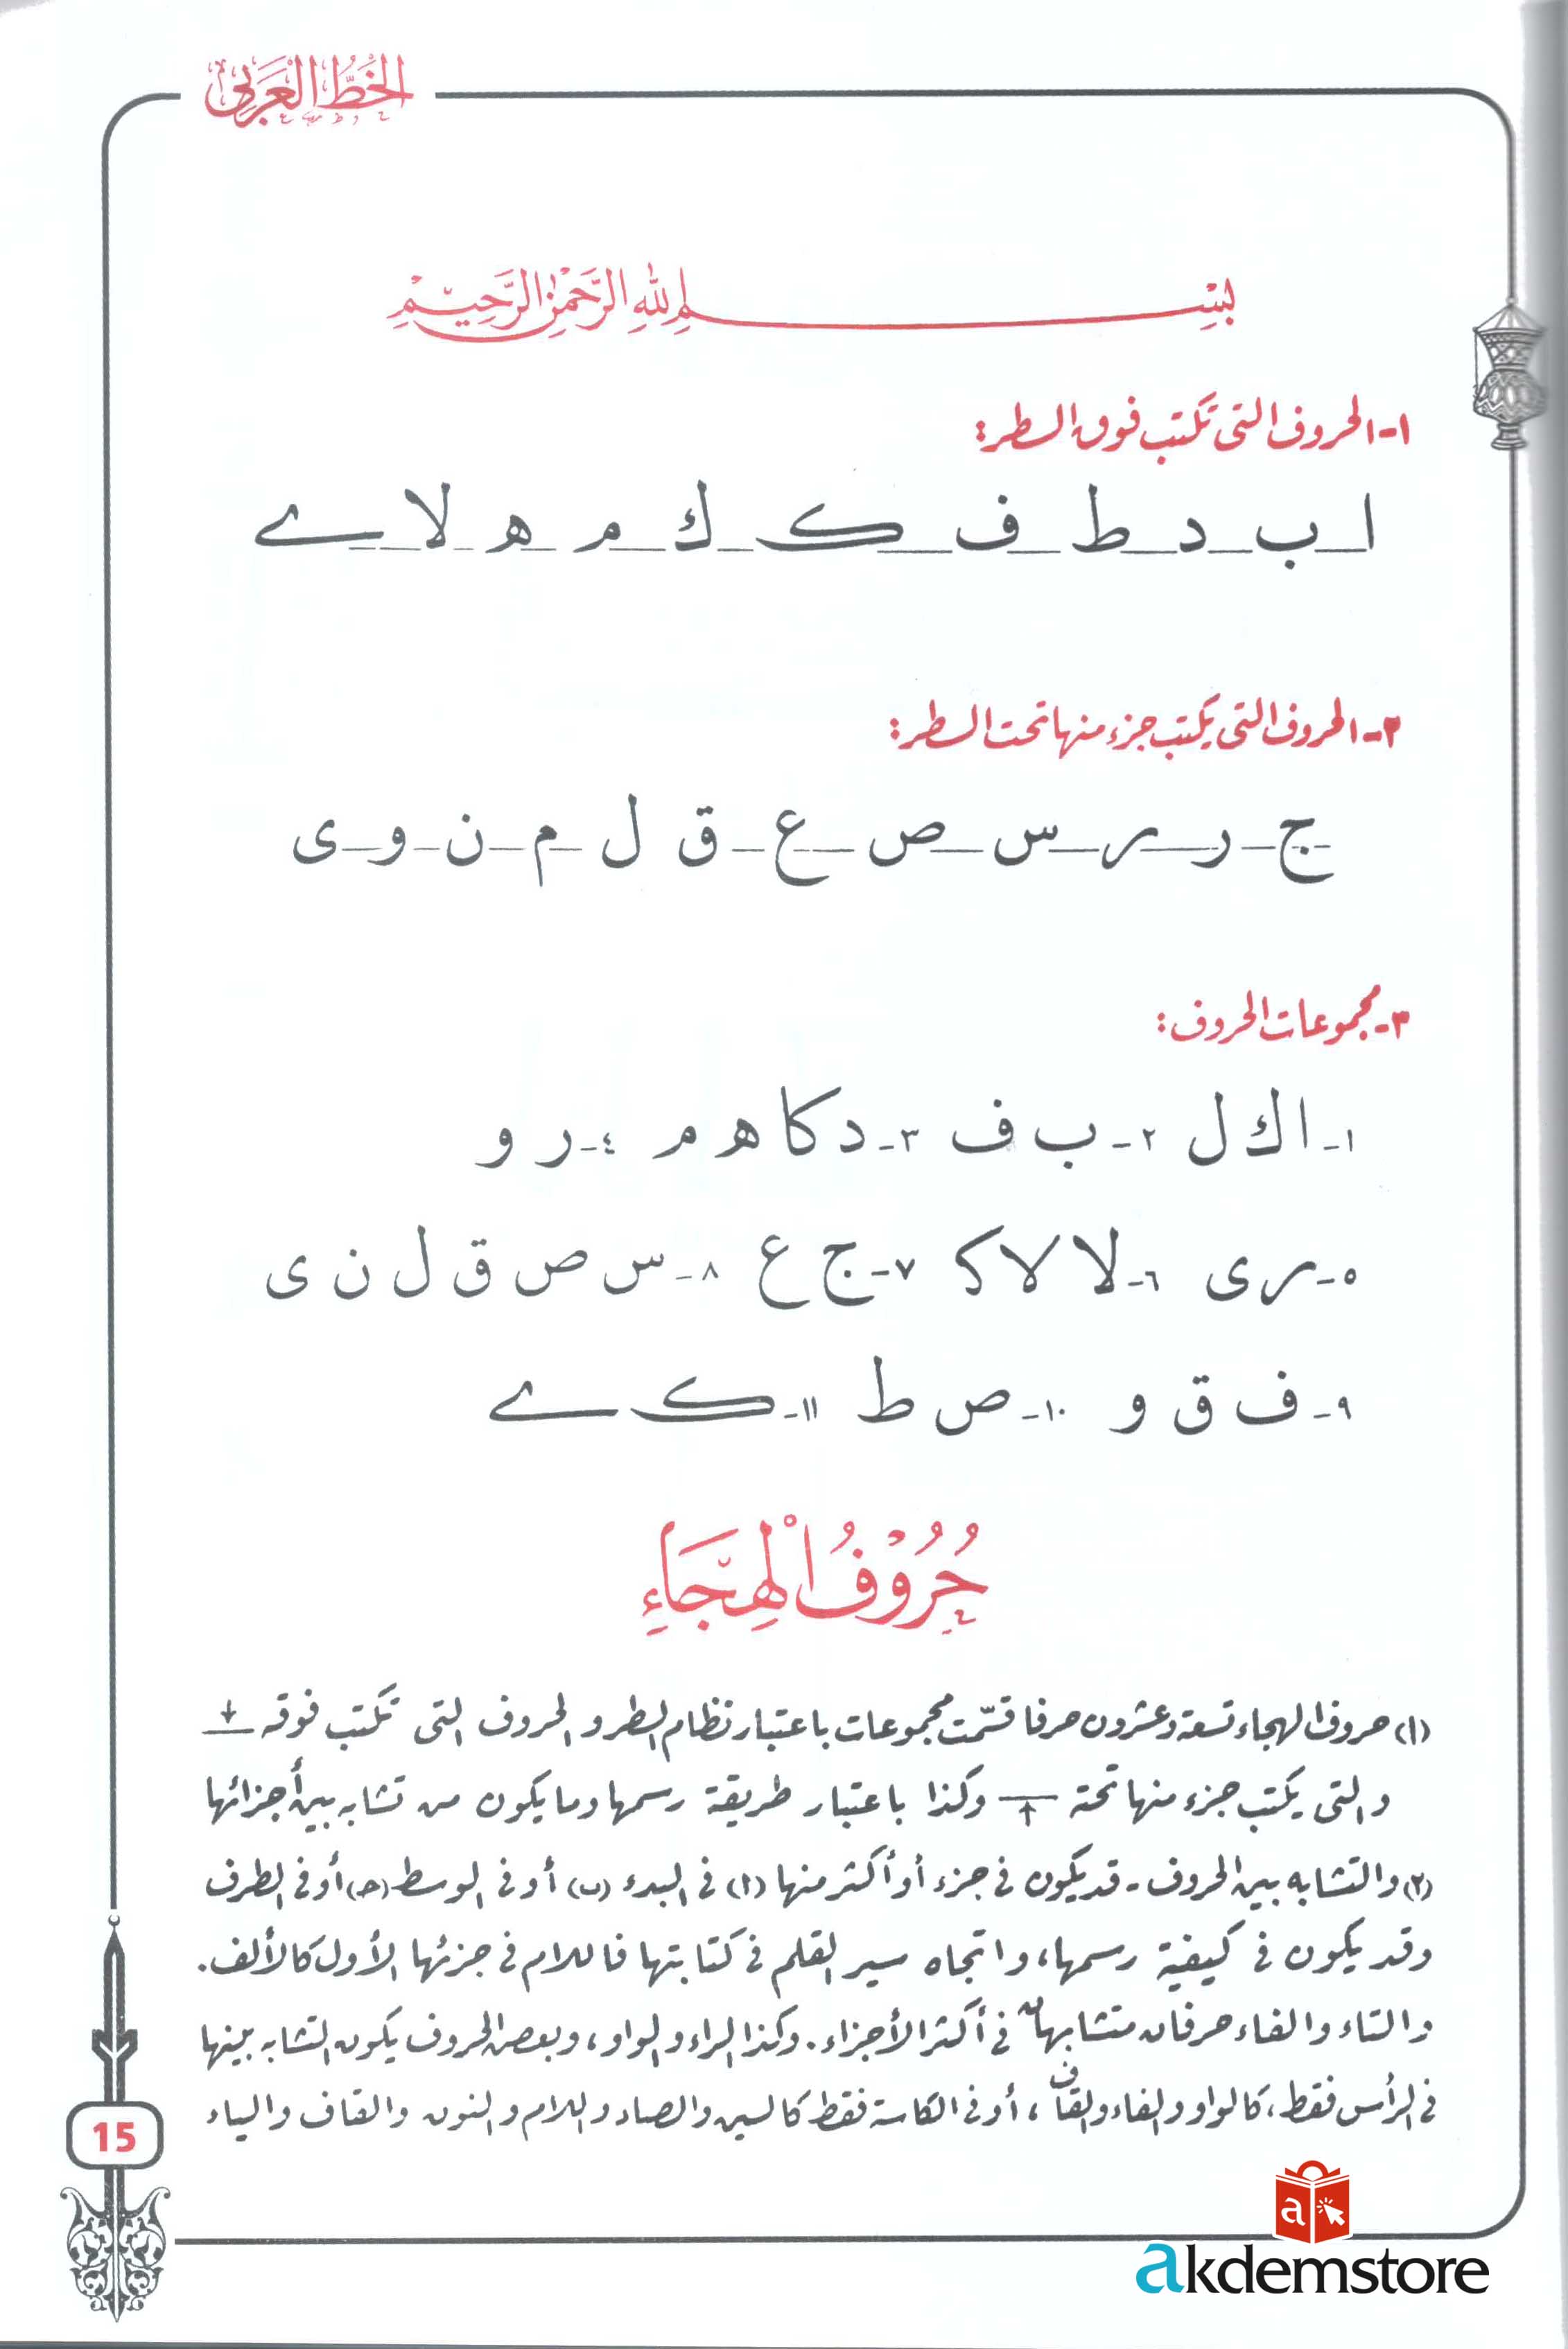 الخَطُّ العَرَبى
بِسْمِ اللهِ الرَّحْمٰنِ الرَّحِيمِ
١- الحروف التى تكتب فوق السطر:
ا ب د ط ف ک ك م ه لا ے
٢- الحروف التى يكتب جزء منها تحت السطر:
ج ر ر س ص ع ق ل م ن و ى
٣- مجموعات الحروف:
١- ا ك ل ٢- ب ف ٣- د كا ه م ٤- ر و
٥- ر ى ٦- لا لا ک ٧- ج ع ٨- س ص ق ل ن ى
٩- ف ق و ١٠- ص ط ١١- ک ے
حُرُوْفُ الْهِجَاءِ
(١) حروف الهجاء تسعة وعشرون حرفا قسّمت مجموعات باعتبار نظام السطر والحروف التى تكتب فوقه
والتى يكتب جزء منها تحته وكذا باعتبار طريقة رسمها وما يكون من تشابه بين أجزائها
(٢) والتشابه بين الحروف - قد يكون فى جزء أو أكثر منها (ا) فى البدء (ب) أو فى الوسط (ج) أو فى الطرف
وقد يكون فى كيفية رسمها، واتجاه سير القلم فى كتابتها فاللام فى جزئها الأول كالألف.
والتاء والفاء حرفان متشابهان فى أكثر الأجزاء. وكذا الراء والواو، وبعض الحروف يكون التشابه بينها
فى الرأس فقط، كالواو والفاء والقاف، أو فى الكاسة فقط كالسين والصاد واللام والنون والقاف والياء
15
a
akdemstore